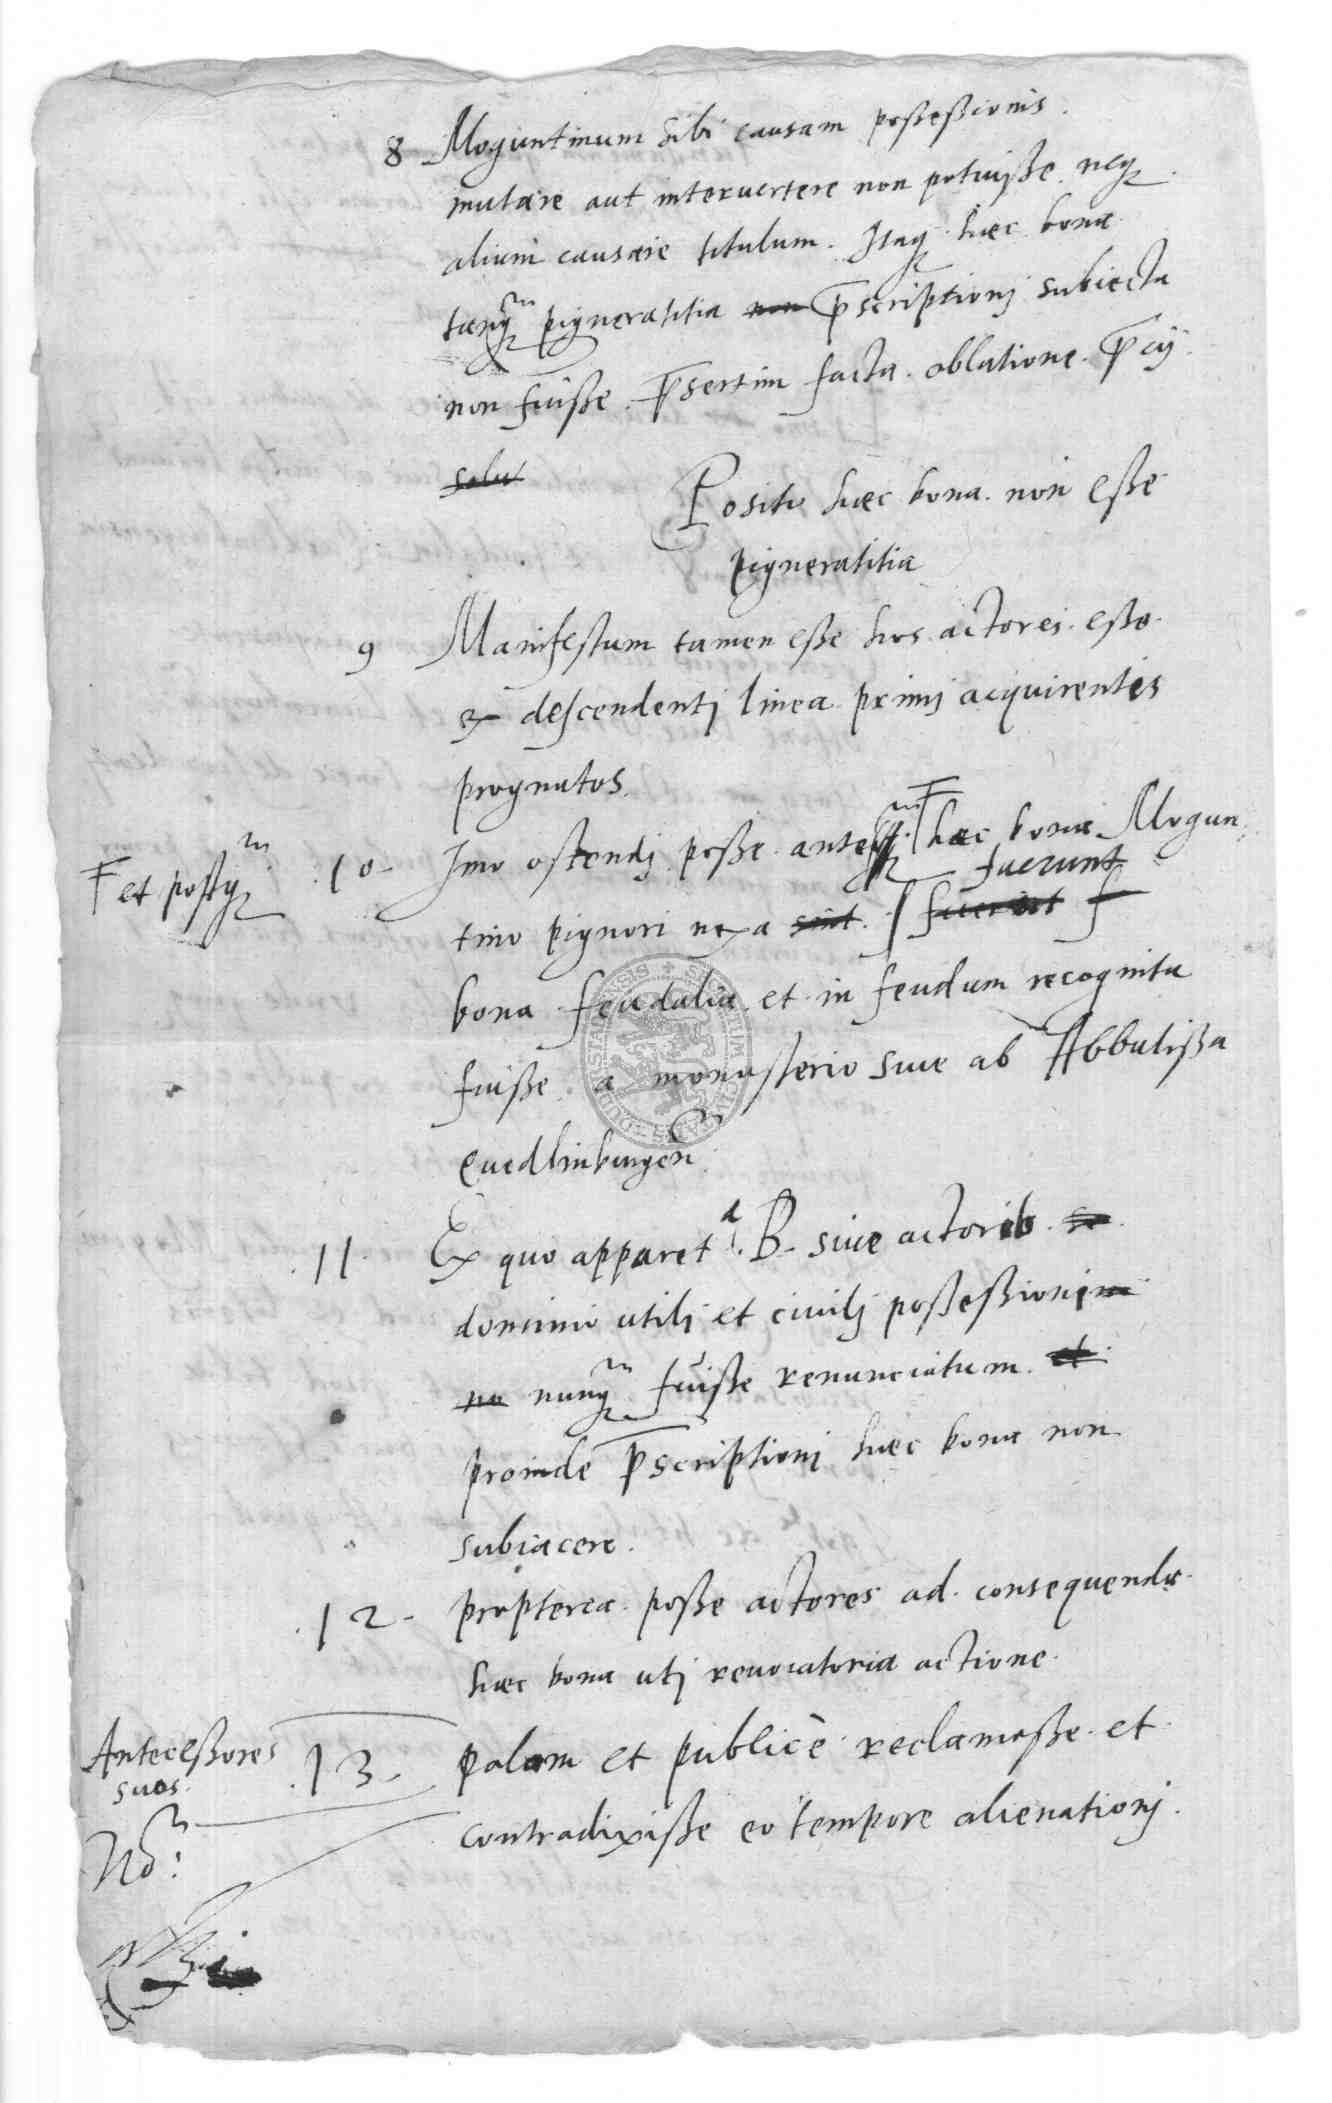 8 Moguntinum sibi causam possessionis
mutare aut interuertere non potuisse neq
alium causare titulum. Itaq haec bona
tanq̃ pigneratitia non p̄scriptionj subiecta
non fuisse. p̄sertim facta oblatione p̄cij
solu
Posito haec bona non esse
pigneratitia
9 Manifestum tamen esse hos actores esse
ex descendentj linea primj acquirentis
prognatos.
10 Imo ostendj posse anteq̃ haec bona Mogun
et postq̃
fuerunt
tino pignori nexa sint. fuerint
bona feudalia et in feudum recognita
fuisse a monasterio siue ab Abbatissa
Quedlinburgen̄
11. Ex quo apparet a. B. siue actorib. se
dominio utilj et ciuilj possessionem
no nunq̃ fuisse renunciatum. et
proinde p̄scriptionj haec bona non
subiacere.
12. propterea posse actores ad consequenda
haec bona utj reuocatoria actione.
Antecessores
suos.
13. palam et publicè reclamasse et
contradixisse eo tempore alienationj.
No: